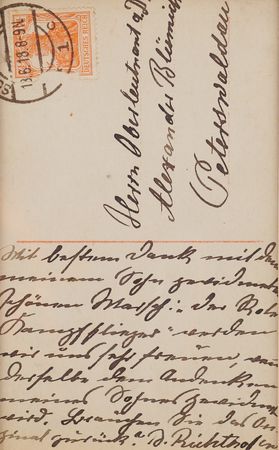 13.6.18.8-9N.
1 c
DEUTSCHES REICH
Herrn Oberleutnant a/D
Alexander Blümich
Peterswaldau
Mit bestem Dank mit dem
meinem Sohn gewidmeten
schönen Marsch: "der Rote
Kampfflieger" werden
wir uns sehr freuen, wenn
derselbe dem Andenken
meines Sohnes gewidmet
wird. Brauchen Sie das Ori-
ginal zurück? D. Richthofen